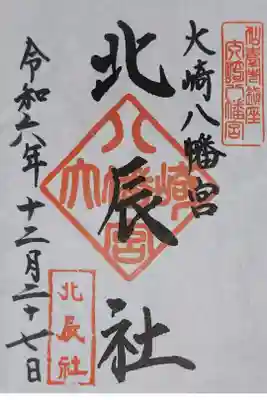 仙臺市鎮座
大崎八幡宮
大崎八幡宮
北辰社
八幡宮
大崎
令和六年十二月二十七日
北辰社